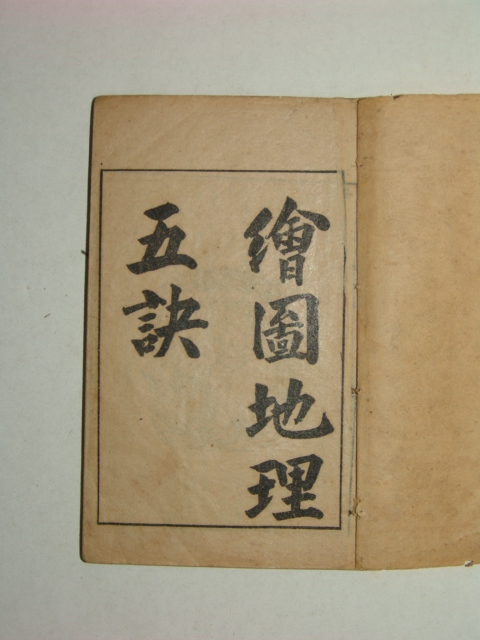 繪圖地理
五訣